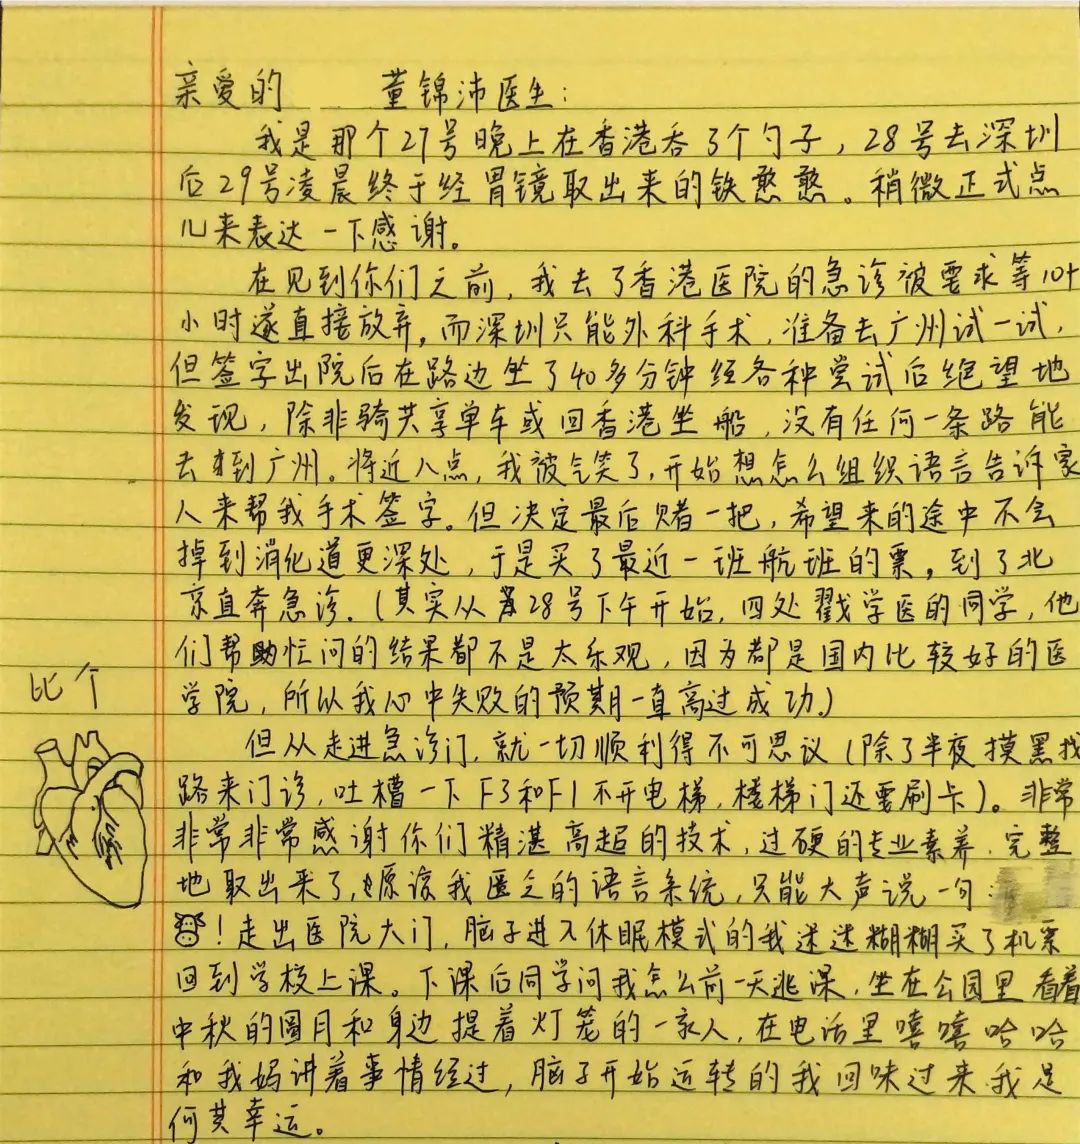 亲爱的 董锦沛医生：
我是那个27号晚上在香港吞了个勺子，28号去深圳
后29号凌晨终于经胃镜取出来的铁憨憨。稍微正式点
儿来表达一下感谢。
在见到你们之前，我去了香港医院的急诊被要求等10+
小时遂直接放弃，而深圳只能外科手术，准备去广州试一试，
但签字出院后在路边坐了40多分钟经各种尝试后绝望地
发现，除非骑共享单车或回香港坐船，没有任何一条路能
去到广州。将近八点，我被气笑了，开始想怎么组织语言告诉家
人来帮我手术签字。但决定最后赌一把，希望来的途中不会
掉到消化道更深处，于是买了最近一班航班的票，到了北
京直奔急诊。（其实从28号下午开始，四处戳学医的同学，他
们帮忙问的结果都不是太乐观，因为都是国内比较好的医
学院，所以我心中失败的预期一直高过成功。）
比个
但从走进急诊门，就一切顺利得不可思议（除了半夜摸黑找
路来门诊，吐槽一下F3和F1不开电梯，楼梯门还要刷卡）。非常
非常非常感谢你们精湛高超的技术，过硬的专业素养，完整
地取出来了，原谅我匮乏的语言系统，只能大声说一句
！走出医院大门，脑子进入休眠模式的我迷迷糊糊买了机票
回到学校上课。下课后同学问我怎么前一天逃课，坐在公园里看着
中秋的圆月和身边提着灯笼的一家人，在电话里嘻嘻哈哈
和我妈讲着事情经过，脑子开始运转的我回味过来我是
何其幸运。